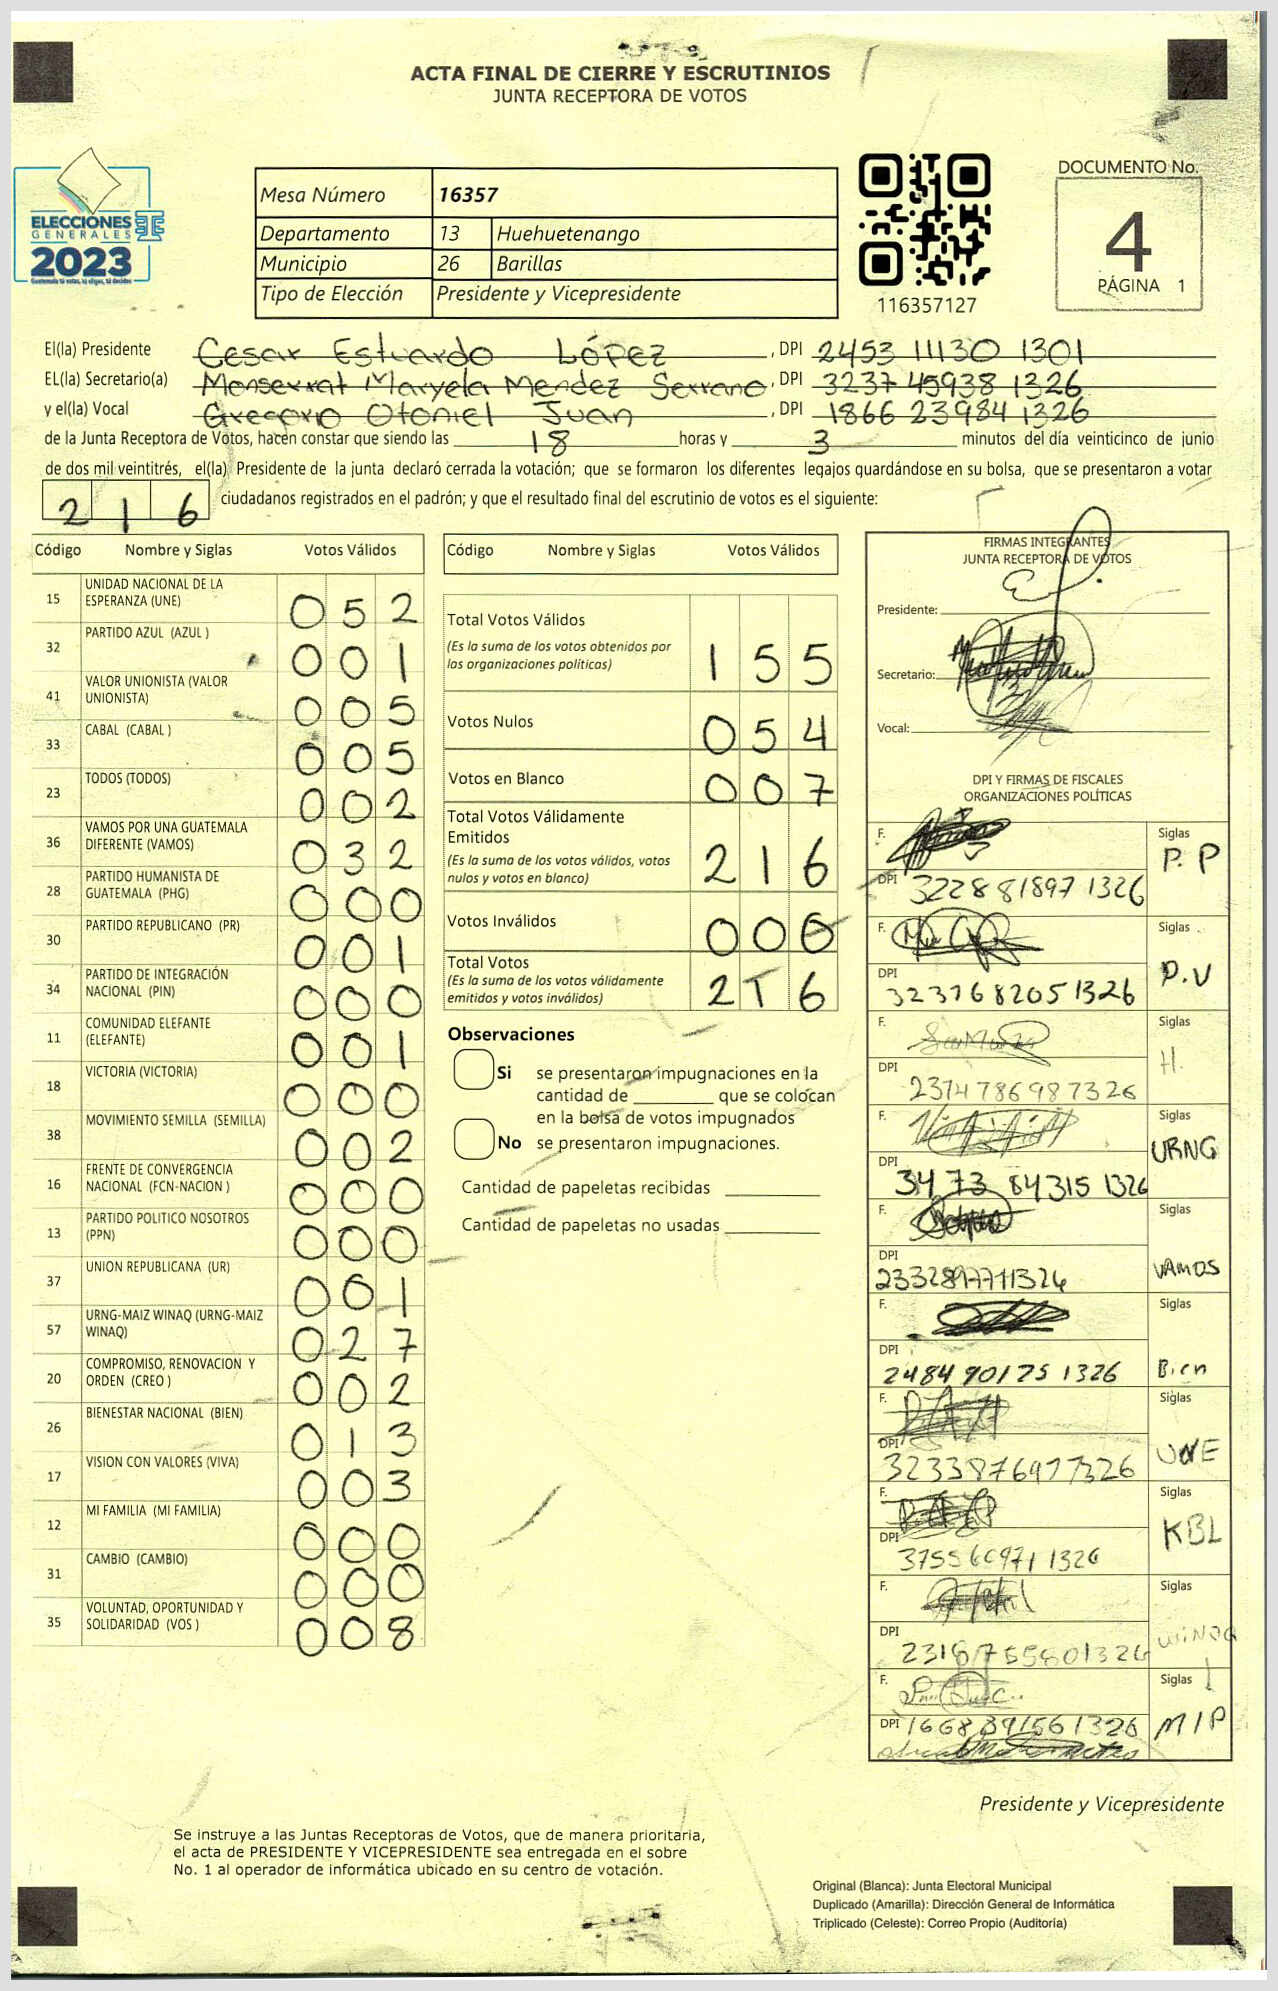 ACTA FINAL DE CIERRE Y ESCRUTINIOS
JUNTA RECEPTORA DE VOTOS
ELECCIONES
GENERALES
2023
Mesa Número 16357
Departamento 13 Huehuetenango
Municipio 26 Barillas
Tipo de Elección Presidente y Vicepresidente
116357127
DOCUMENTO No.
4
PÁGINA 1
El(la) Presidente Cesar Estuardo López, DPI 2453 11130 1301
EL(la) Secretario(a) Monserrat Maryela Mendez Serrano, DPI 3237 45938 1326
y el(la) Vocal Gregorio Otoniel Juan, DPI 1866 23984 1326
de la Junta Receptora de Votos, hacen constar que siendo las 18 horas y 3 minutos del día veinticinco de junio
de dos mil veintitrés, el(la) Presidente de la junta declaró cerrada la votación; que se formaron los diferentes legajos guardándose en su bolsa, que se presentaron a votar
216 ciudadanos registrados en el padrón; y que el resultado final del escrutinio de votos es el siguiente:
Código Nombre y Siglas Votos Válidos
15 UNIDAD NACIONAL DE LA
ESPERANZA (UNE) 052
32 PARTIDO AZUL (AZUL ) 001
41 VALOR UNIONISTA (VALOR
UNIONISTA) 005
33 CABAL (CABAL ) 005
23 TODOS (TODOS) 002
36 VAMOS POR UNA GUATEMALA
DIFERENTE (VAMOS) 032
28 PARTIDO HUMANISTA DE
GUATEMALA (PHG) 000
30 PARTIDO REPUBLICANO (PR) 001
34 PARTIDO DE INTEGRACIÓN
NACIONAL (PIN) 000
11 COMUNIDAD ELEFANTE
(ELEFANTE) 001
18 VICTORIA (VICTORIA) 000
38 MOVIMIENTO SEMILLA (SEMILLA) 002
16 FRENTE DE CONVERGENCIA
NACIONAL (FCN-NACION ) 000
13 PARTIDO POLITICO NOSOTROS
(PPN) 000
37 UNION REPUBLICANA (UR) 001
57 URNG-MAIZ WINAQ (URNG-MAIZ
WINAQ) 027
20 COMPROMISO, RENOVACION Y
ORDEN (CREO ) 002
26 BIENESTAR NACIONAL (BIEN) 013
17 VISION CON VALORES (VIVA) 003
12 MI FAMILIA (MI FAMILIA) 000
31 CAMBIO (CAMBIO) 000
35 VOLUNTAD, OPORTUNIDAD Y
SOLIDARIDAD (VOS ) 008
Código Nombre y Siglas Votos Válidos
Total Votos Válidos
(Es la suma de los votos obtenidos por
las organizaciones políticas) 155
Votos Nulos 054
Votos en Blanco 007
Total Votos Válidamente
Emitidos
(Es la suma de los votos válidos, votos
nulos y votos en blanco) 216
Votos Inválidos 000
Total Votos
(Es la suma de los votos válidamente
emitidos y votos inválidos) 216
Observaciones
Si se presentaron impugnaciones en la
cantidad de ________ que se colocan
en la bolsa de votos impugnados
No se presentaron impugnaciones.
Cantidad de papeletas recibidas
Cantidad de papeletas no usadas
FIRMAS INTEGRANTES
JUNTA RECEPTORA DE VOTOS
Presidente:
Secretario:
Vocal:
DPI Y FIRMAS DE FISCALES
ORGANIZACIONES POLÍTICAS
F. Siglas
P. P
DPI 322881897 1326
F. Siglas
P.V
DPI 323768205 1326
F. Siglas
H.
DPI
F. Siglas
URNG
DPI 3473 84315 1326
F. Siglas
VAMOS
DPI
F. Siglas
Bien
DPI 2484 90175 1326
F. Siglas
UNE
DPI
F. Siglas
KBL
DPI
F. Siglas
WINAQ
DPI
F. Siglas
MLP
DPI
Presidente y Vicepresidente
Se instruye a las Juntas Receptoras de Votos, que de manera prioritaria,
el acta de PRESIDENTE Y VICEPRESIDENTE sea entregada en el sobre
No. 1 al operador de informática ubicado en su centro de votación.
Original (Blanca): Junta Electoral Municipal
Duplicado (Amarilla): Dirección General de Informática
Triplicado (Celeste): Correo Propio (Auditoría)